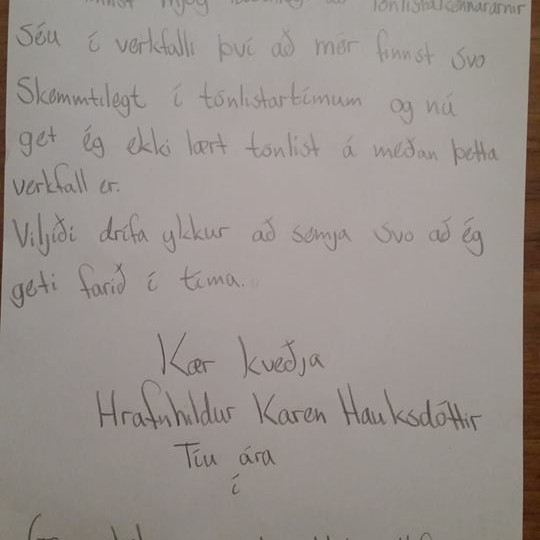 mjög tónlistakennararnir
séu í verkfalli því að mér finnst svo
skemmtilegt í tónlistartímum og nú
get ég ekki lært tónlist á meðan þetta
verkfall er.
Viljiði drífa ykkur að semja svo að ég
geti farið í tíma.
Kær kveðja
Hrafnhildur Karen Hauksdóttir
Tíu ára
í